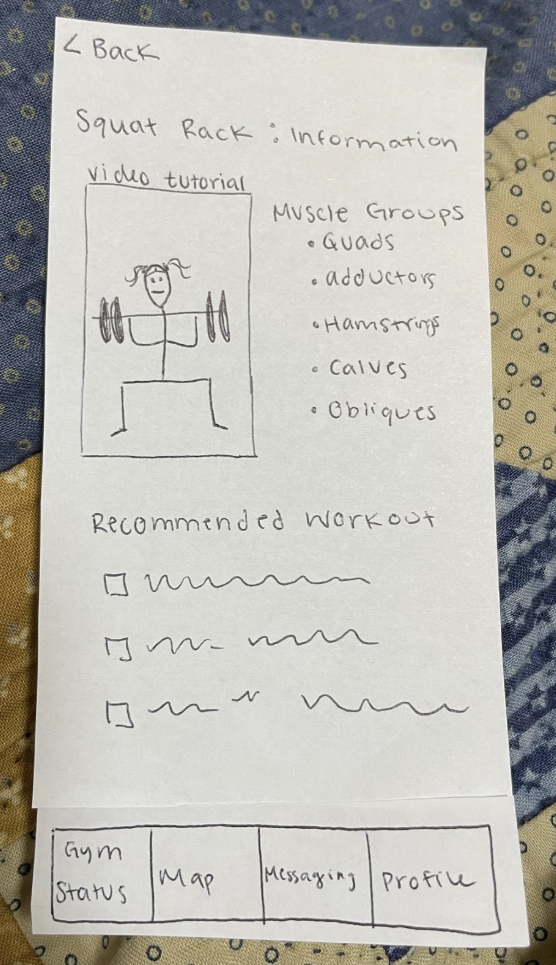 < Back
Squat Rack : Information
video tutorial
Muscle Groups
• Quads
• adductors
• Hamstrings
• Calves
• Obliques
Recommended Workout
Gym Status
Map
Messaging
Profile